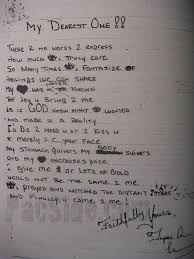 My Dearest One!!
There R no words 2 express
How much I truly care
So Many Times I Fantasize of
feelings we can share
My ♥ has known
The Joy u bring 2 me
is GOD knew what I wanted
and made u a Reality
2 Die 2 Hold u or 2 Kiss u
R merely 2 C your Face
My stomach quivers My BODY shivers
and my ♥ increases pace
2 give me or Lots of Gold
would not be the same 2 me
I prayed and watched the distant stars
and Finally u came 2 me.
Faithfully Yours,